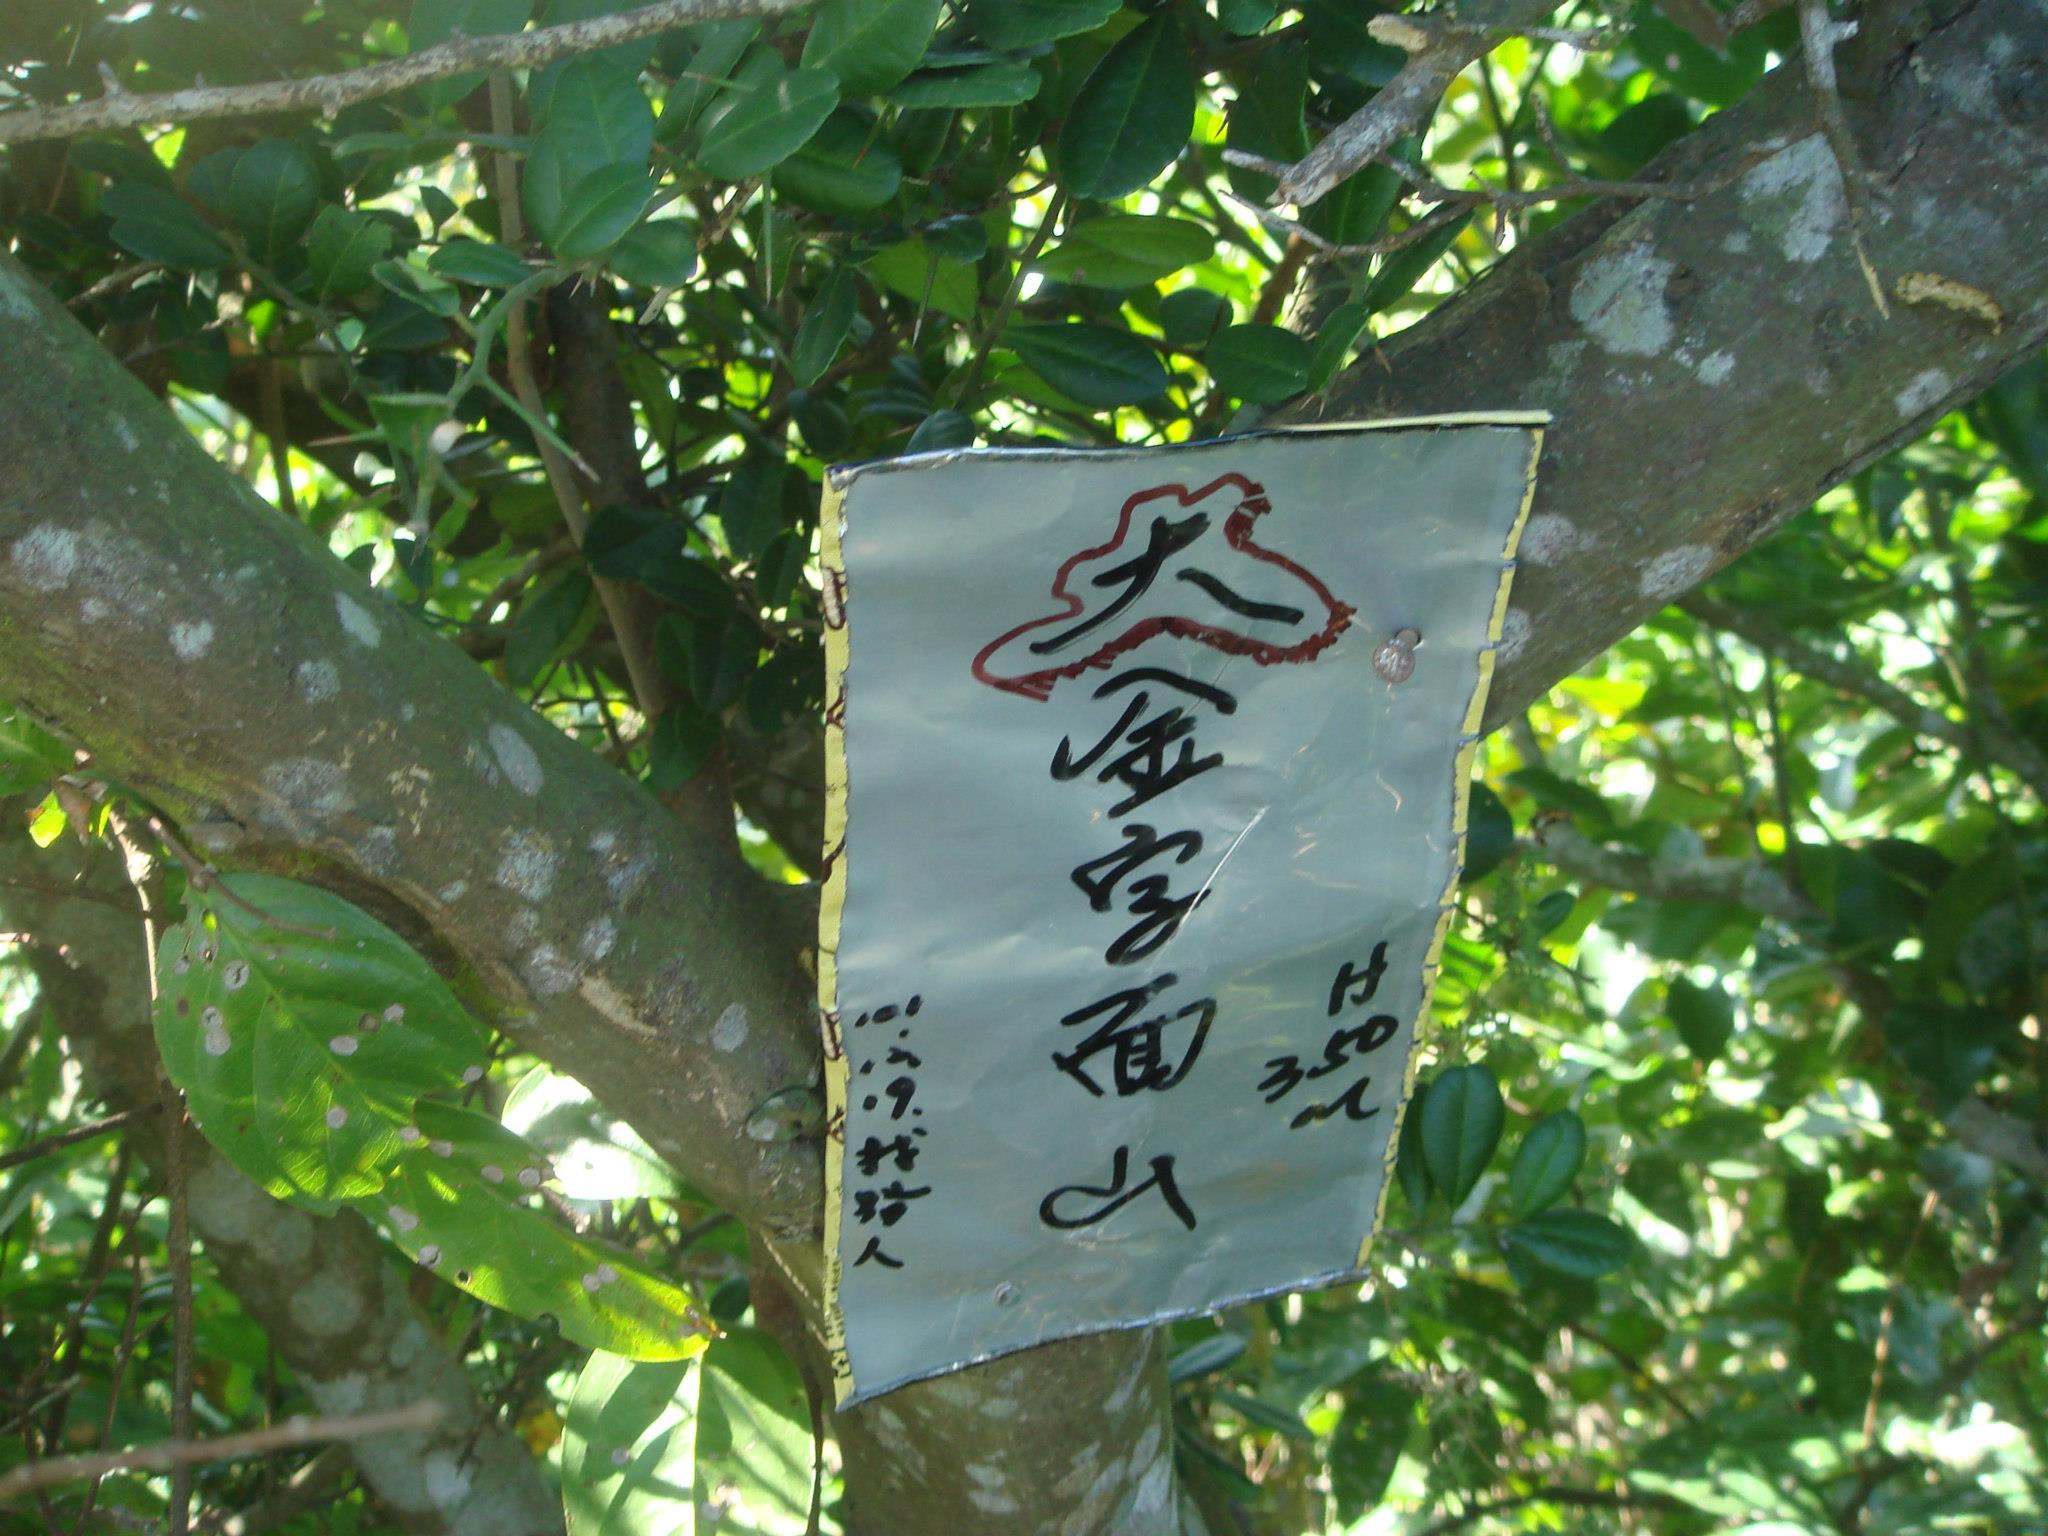 大金字面山
H 350 M
101.12.19.找路人